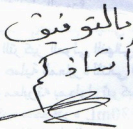 بالتوفيق
أستاذكم